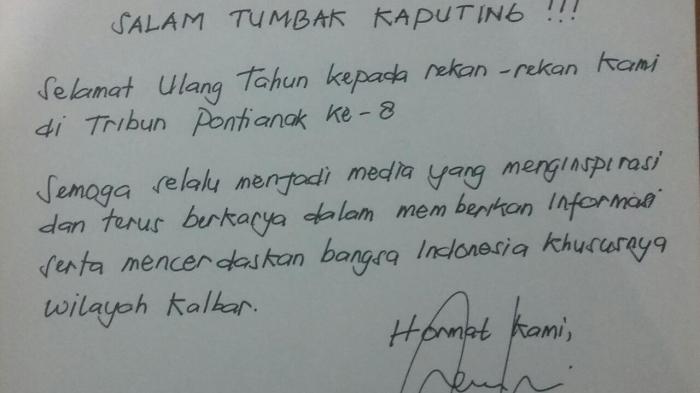 SALAM TUMBAK KAPUTING !!!
Selamat Ulang Tahun kepada rekan-rekan Kami
di Tribun Pontianak Ke-8
Semoga selalu menjadi media yang menginspirasi
dan terus berkarya dalam memberikan Informasi
serta mencerdaskan bangsa Indonesia khususnya
wilayah Kalbar.
Hormat Kami,